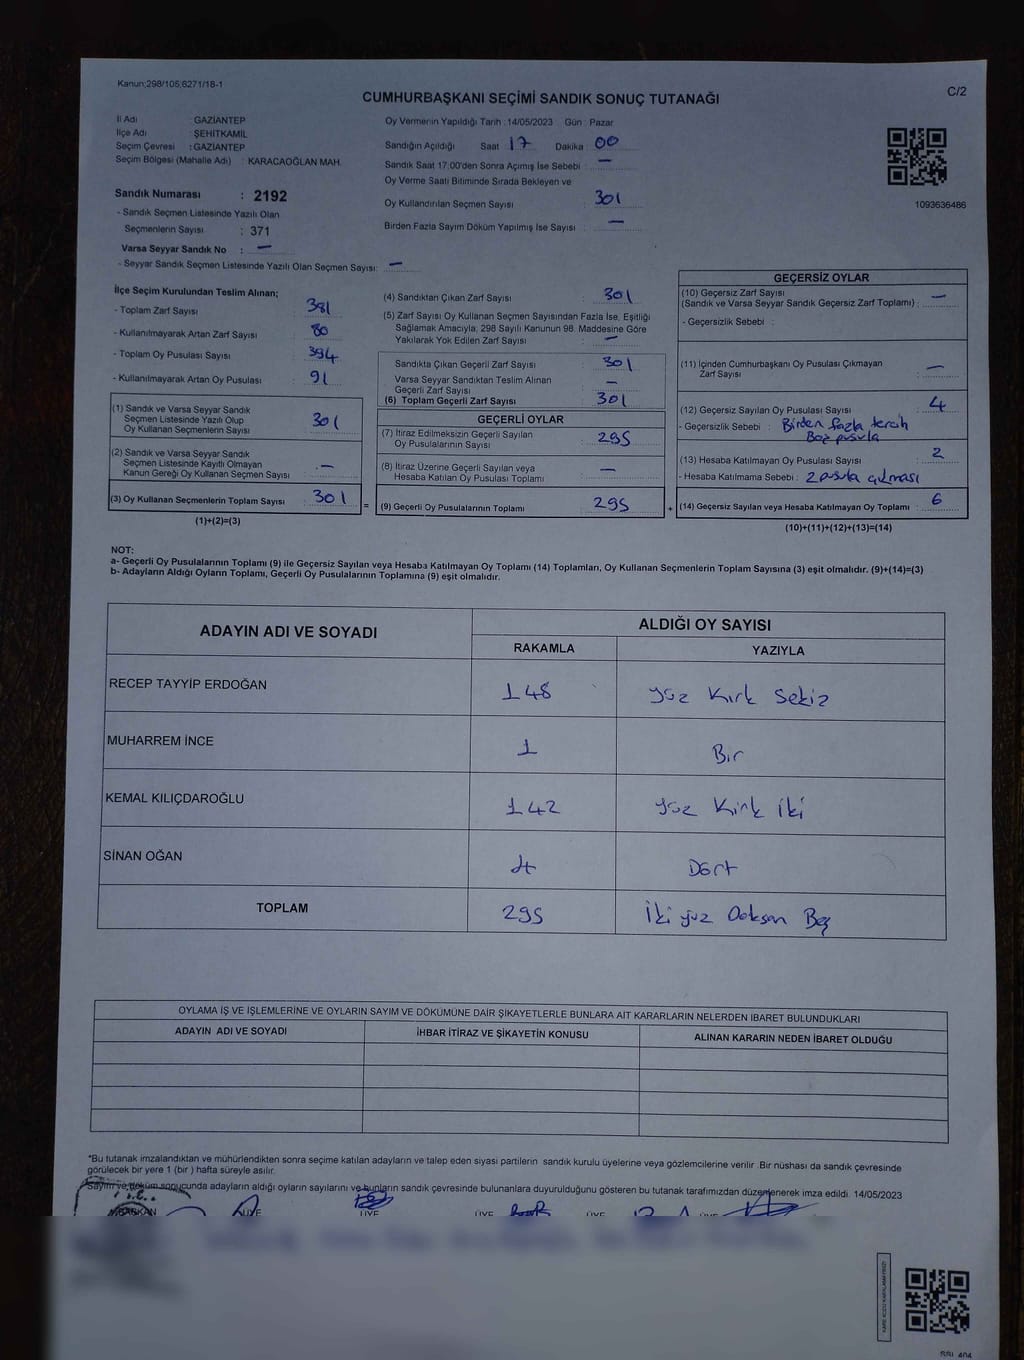 Kanun;298/105;6271/18-1
C/2
CUMHURBAŞKANI SEÇİMİ SANDIK SONUÇ TUTANAĞI
İl Adı : GAZİANTEP
İlçe Adı : ŞEHİTKAMİL
Seçim Çevresi : GAZİANTEP
Seçim Bölgesi (Mahalle Adı) : KARACAOĞLAN MAH.
Sandık Numarası : 2192
- Sandık Seçmen Listesinde Yazılı Olan
Seçmenlerin Sayısı : 371
Varsa Seyyar Sandık No : —
- Seyyar Sandık Seçmen Listesinde Yazılı Olan Seçmen Sayısı: —
Oy Vermenin Yapıldığı Tarih : 14/05/2023 Gün : Pazar
Sandığın Açıldığı Saat 17 Dakika 00
Sandık Saat 17:00'den Sonra Açımış İse Sebebi : —
Oy Verme Saati Bitiminde Sırada Bekleyen ve
Oy Kullandırılan Seçmen Sayısı 301
Birden Fazla Sayım Döküm Yapılmış İse Sayısı : —
1093636486
İlçe Seçim Kurulundan Teslim Alınan;
- Toplam Zarf Sayısı : 381
- Kullanılmayarak Artan Zarf Sayısı : 80
- Toplam Oy Pusulası Sayısı : 394
- Kullanılmayarak Artan Oy Pusulası : 91
(1) Sandık ve Varsa Seyyar Sandık
Seçmen Listesinde Yazılı Olup
Oy Kullanan Seçmenlerin Sayısı 301
(2) Sandık ve Varsa Seyyar Sandık
Seçmen Listesinde Kayıtlı Olmayan
Kanun Gereği Oy Kullanan Seçmen Sayısı —
(3) Oy Kullanan Seçmenlerin Toplam Sayısı 301
(1)+(2)=(3)
=
(4) Sandıktan Çıkan Zarf Sayısı 301
(5) Zarf Sayısı Oy Kullanan Seçmen Sayısından Fazla İse, Eşitliği
Sağlamak Amacıyla; 298 Sayılı Kanunun 98. Maddesine Göre
Yakılarak Yok Edilen Zarf Sayısı : —
Sandıkta Çıkan Geçerli Zarf Sayısı 301
Varsa Seyyar Sandıktan Teslim Alınan
Geçerli Zarf Sayısı —
(6) Toplam Geçerli Zarf Sayısı 301
GEÇERLİ OYLAR
(7) İtiraz Edilmeksizin Geçerli Sayılan
Oy Pusulalarının Sayısı 295
(8) İtiraz Üzerine Geçerli Sayılan veya
Hesaba Katılan Oy Pusulası Toplamı —
(9) Geçerli Oy Pusulalarının Toplamı 295
+
GEÇERSİZ OYLAR
(10) Geçersiz Zarf Sayısı
(Sandık ve Varsa Seyyar Sandık Geçersiz Zarf Toplamı) : —
- Geçersizlik Sebebi :
(11) İçinden Cumhurbaşkanı Oy Pusulası Çıkmayan
Zarf Sayısı —
(12) Geçersiz Sayılan Oy Pusulası Sayısı 4
- Geçersizlik Sebebi : Birden fazla tercih
Boş pusula
(13) Hesaba Katılmayan Oy Pusulası Sayısı 2
- Hesaba Katılmama Sebebi : 2 pusula çıkması
(14) Geçersiz Sayılan veya Hesaba Katılmayan Oy Toplamı 6
(10)+(11)+(12)+(13)=(14)
NOT:
a- Geçerli Oy Pusulalarının Toplamı (9) ile Geçersiz Sayılan veya Hesaba Katılmayan Oy Toplamı (14) Toplamları, Oy Kullanan Seçmenlerin Toplam Sayısına (3) eşit olmalıdır. (9)+(14)=(3)
b- Adayların Aldığı Oyların Toplamı, Geçerli Oy Pusulalarının Toplamına (9) eşit olmalıdır.
ADAYIN ADI VE SOYADI
ALDIĞI OY SAYISI
RAKAMLA YAZIYLA
RECEP TAYYİP ERDOĞAN 148 yüz Kırk Sekiz
MUHARREM İNCE 1 Bir
KEMAL KILIÇDAROĞLU 142 yüz Kırk İki
SİNAN OĞAN 4 Dört
TOPLAM 295 İki yüz Doksan Beş
OYLAMA İŞ VE İŞLEMLERİNE VE OYLARIN SAYIM VE DÖKÜMÜNE DAİR ŞİKAYETLERLE BUNLARA AİT KARARLARIN NELERDEN İBARET BULUNDUKLARI
ADAYIN ADI VE SOYADI İHBAR İTİRAZ VE ŞİKAYETİN KONUSU ALINAN KARARIN NEDEN İBARET OLDUĞU
*Bu tutanak imzalandıktan ve mühürlendikten sonra seçime katılan adayların ve talep eden siyasi partilerin sandık kurulu üyelerine veya gözlemcilerine verilir. Bir nüshası da sandık çevresinde
görülecek bir yere 1 (bir ) hafta süreyle asılır.
Sayım ve döküm sonucunda adayların aldığı oyların sayılarını ve bunların sandık çevresinde bulunanlara duyurulduğunu gösteren bu tutanak tarafımızdan düzenlenerek imza edildi. 14/05/2023
BAŞKAN ÜYE ÜYE ÜYE ÜYE ÜYE